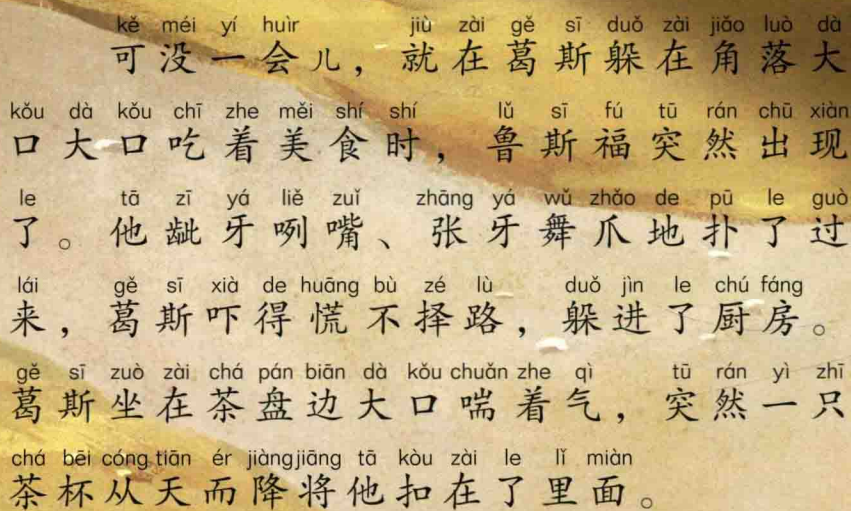 kě méi yí huìr jiù zài gě sī duǒ zài jiǎo luò dà
可没一会儿，就在葛斯躲在角落大
kǒu dà kǒu chī zhe měi shí shí lǔ sī fú tū rán chū xiàn
口大口吃着美食时，鲁斯福突然出现
le tā zī yá liě zuǐ zhāng yá wǔ zhǎo de pū le guò
了。他龇牙咧嘴、张牙舞爪地扑了过
lái gě sī xià de huāng bù zé lù duǒ jìn le chú fáng
来，葛斯吓得慌不择路，躲进了厨房。
gě sī zuò zài chá pán biān dà kǒu chuǎn zhe qì tū rán yì zhī
葛斯坐在茶盘边大口喘着气，突然一只
chá bēi cóng tiān ér jiàng jiāng tā kòu zài le lǐ miàn
茶杯从天而降将他扣在了里面。